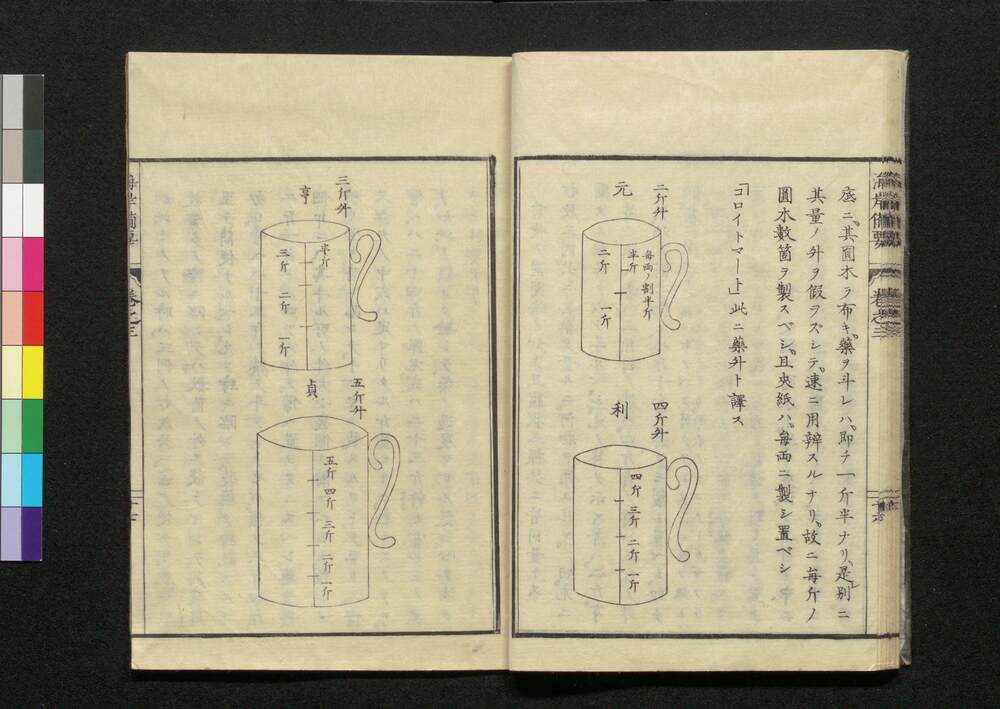 底ニ其圓木ヲ布キ藥ヲ斗レハ即チ一斤半ナリ是別ニ
其量ノ升ヲ假ラズシテ速ニ用辨スルナリ故ニ每斤ノ
圓木數箇ヲ製スベシ且夾紙ハ每両ニ製シ置ベシ
「コロイトマート」此ニ藥升ト譯ス
二斤升
元
每両ノ割半斤
半斤
二斤
一斤
四斤升
利
四斤
三斤
二斤
一斤
海岸備要
卷之三
三斤升
亨
半斤
三斤
二斤
一斤
五斤升
貞
五斤
四斤
三斤
二斤
一斤
卷之三